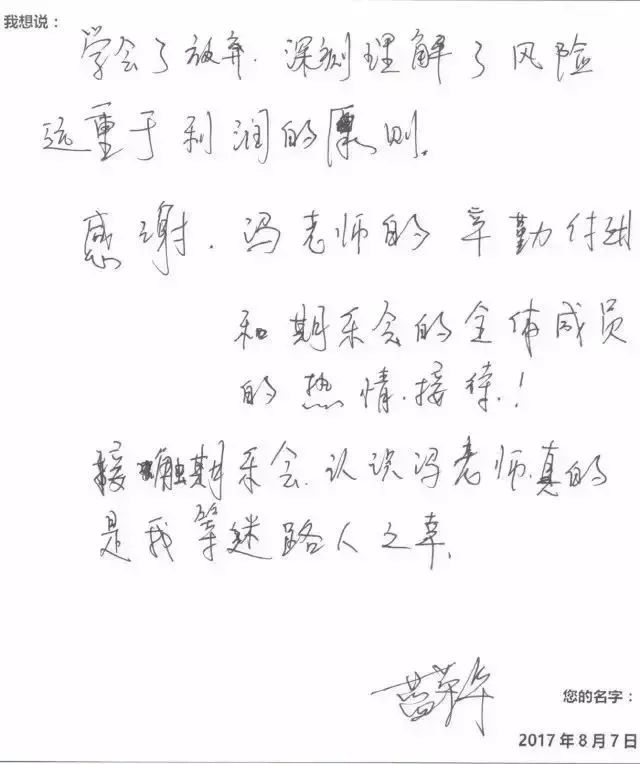 我想说：
学会了放弃.深刻理解了风险
远重于利润的原则.
感谢.冯老师的辛勤付出
和期乐会的全体成员
的热情.接待.!
接触期乐会.认识冯老师.真的
是我等迷路人之幸.
您的名字：
2017年8月7日